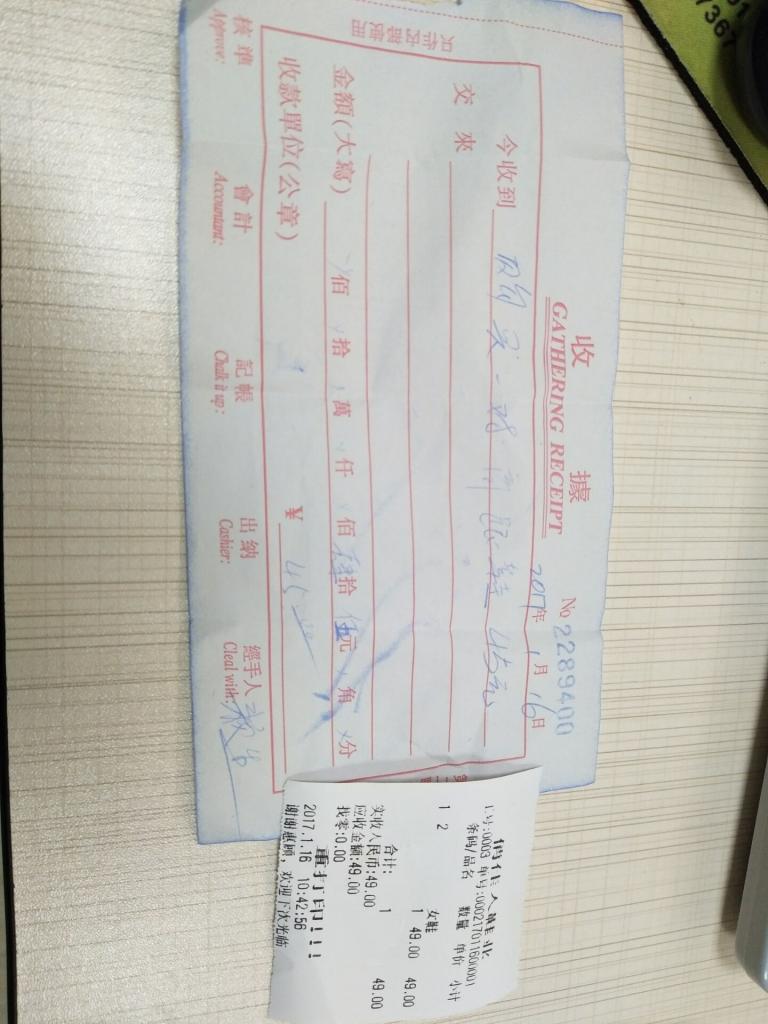 收據
GATHERING RECEIPT
№ 2289400
2017年1月16日
今收到 买一 高跟鞋 45元
交來
金額(大寫) 佰 拾 萬 仟 佰 肆拾 伍元 角 分
收款單位(公章) ¥ 45.00
核準 會計 記帳 出納 經手人
Approve: Accountant: Chalk it up: Cashier: Cleal with:
俏佳人鞋业
工号:0003 单号:000217011600001
条码/品名 数量 单价 小计
女鞋
1 2 1 49.00 49.00
合计: 1 49.00
实收人民币:49.00
应收金额:49.00
找零:0.00
重打印!!!
2017.1.16 10:42:56
谢谢惠顾，欢迎下次光临
01
7367